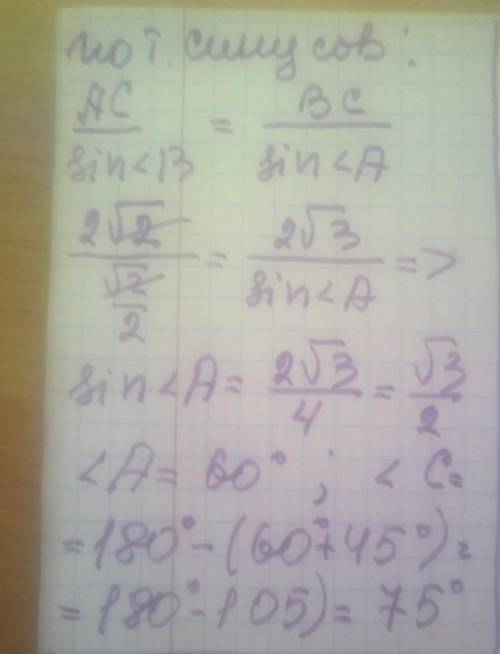 по т. синусов:
AC/sin<B = BC/sin<A
2√2/(√2/2) = 2√3/sin<A =>
sin<A = 2√3/4 = √3/2
<A = 60° ; < C=
=180°-(60°+45°)=
=180°-105)= 75°